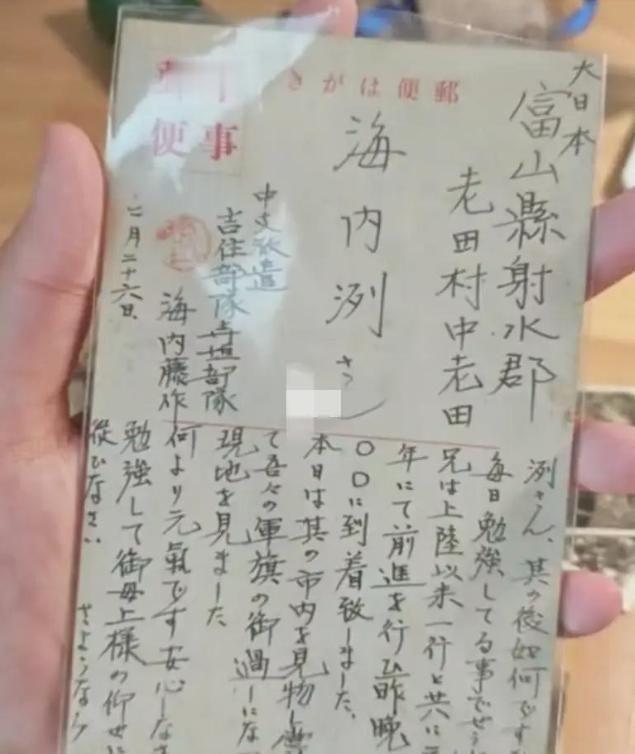 郵便はがき
軍事
郵便
大日本
富山縣射水郡
老田村中老田
海内洌さん
中支派遣
吉住部隊 部隊
海内藤作
二月二十六日
洌さん、其の後如何です
毎日勉強してる事でせう
兄は上陸以来一行と共に
年にて前進を行ひ昨晩
〇〇に到着致しました、
本日は其の市内を見物し
て吾々の軍旗の御過しにな
現地を見ました
何より元氣です安心しな
勉強して御母上様の仰せに
従ひなさい さようなら